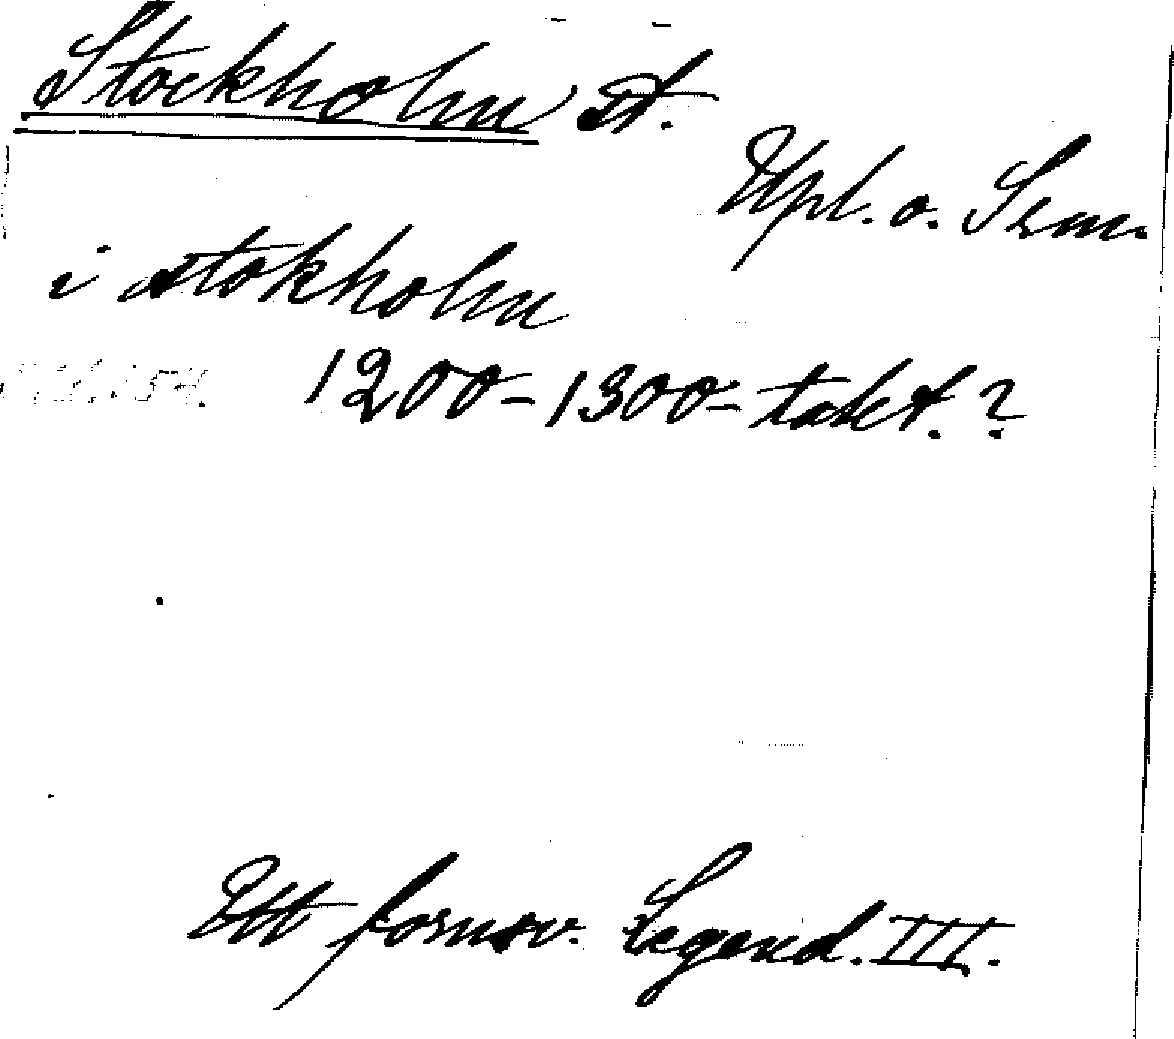 Stockholm st.
Upl. o. Srm.
i stokholm
1200-1300-talet.?
Ett fornsv. Legend. III.